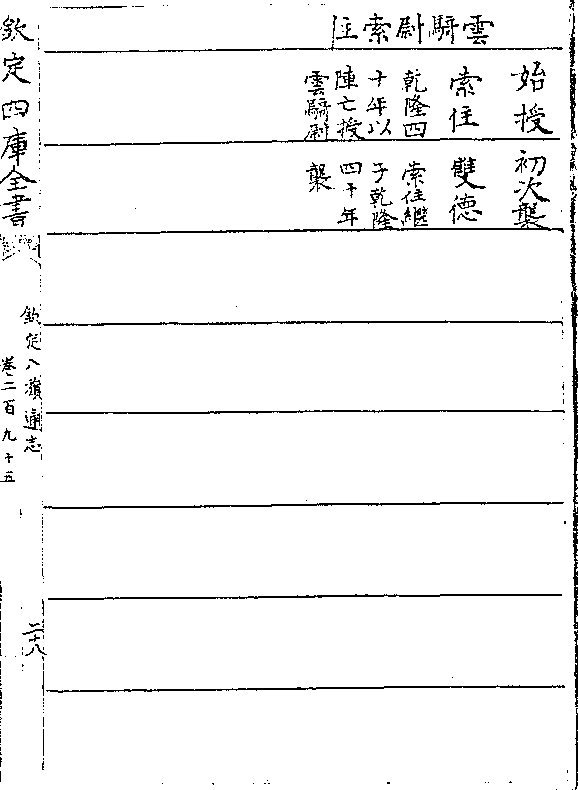 雲騎尉索住
始授
索住
乾隆四
十年以
陣亡授
雲騎尉
初次襲
雙德
索住繼
子乾隆
四十年
襲
欽定四庫全書
欽定八旗通志
卷二百九十五
二十八